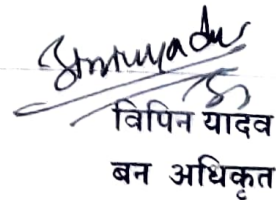 विपिन यादव
बन अधिकृत